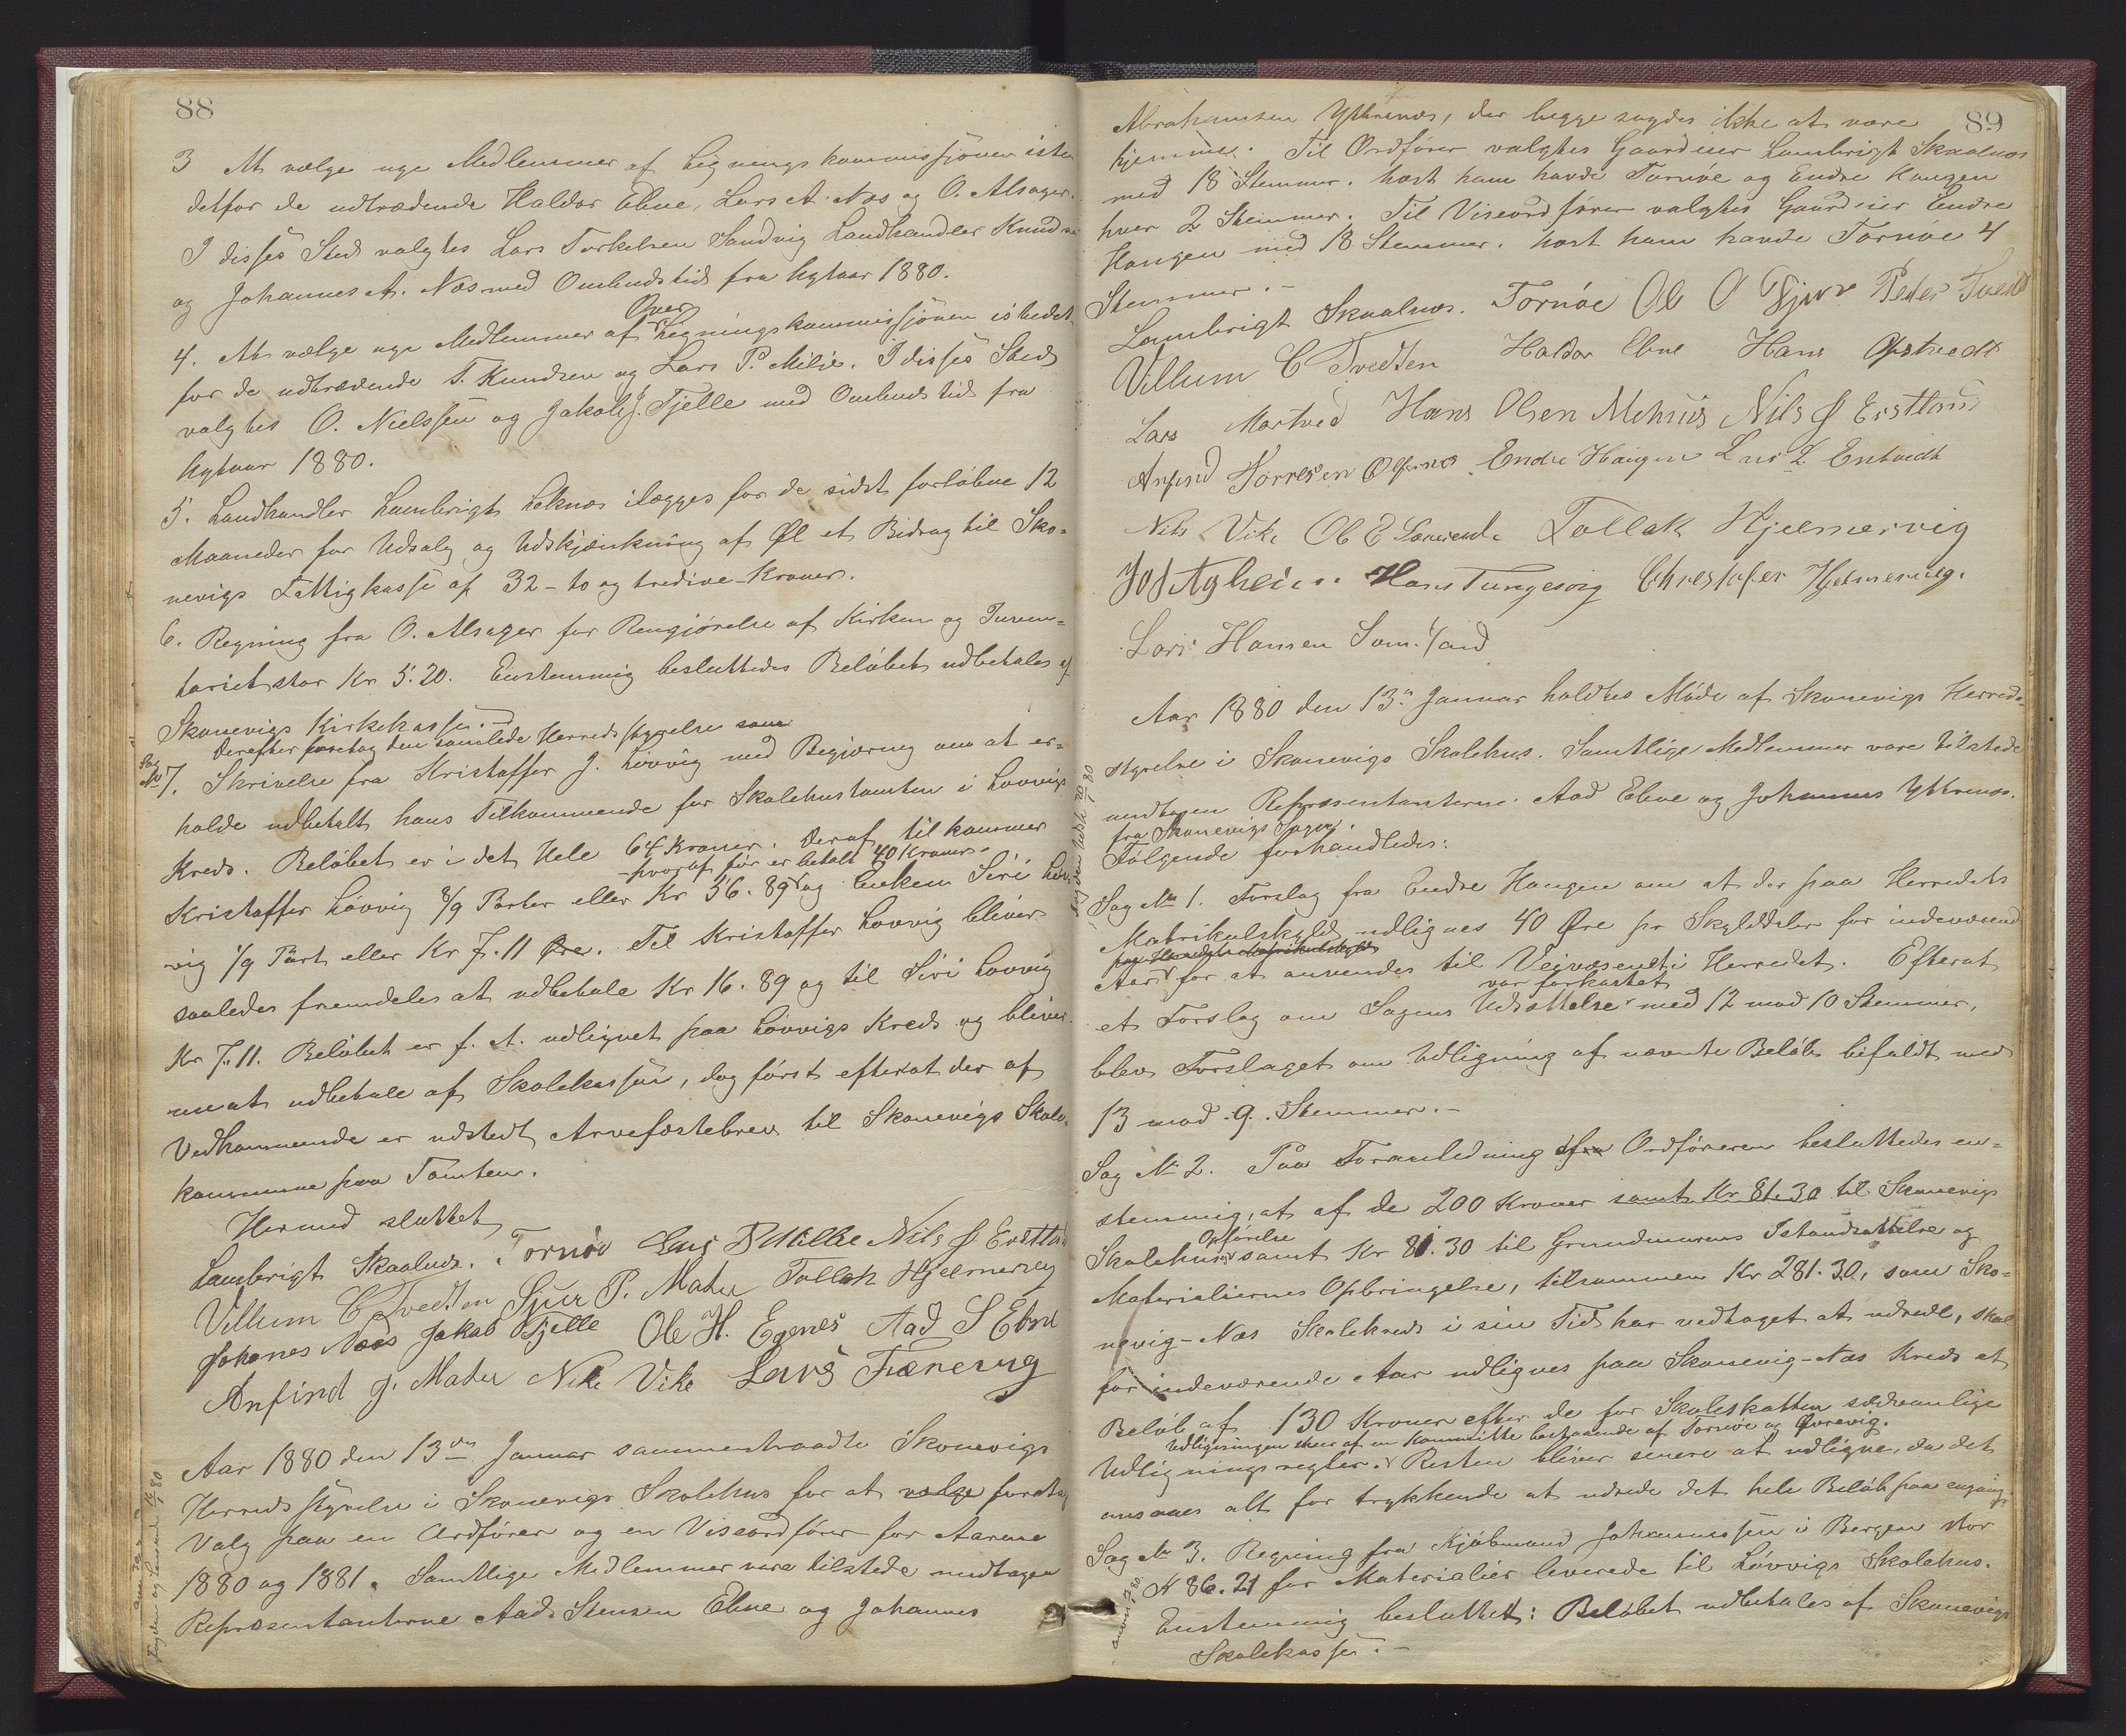 88
3 At vælge nye Medlemmer af Ligningskommissjonen iste
detfor de udtrædende Haldor Ebne, Lars A. Næs og O. Alsager.
I disses Sted valgtes Lars Torkelsen Sandvig Landhandler Knudsen
og Johannes A. Næs med Ombudstid fra Nytaar 1880.
Over
4. At vælge nye Medlemmer af Ligningskommissjonen istedet
for de udtrædende T. Knudsen og Lars P. Milje. I disses Sted
valgtes O. Nielssen og Jakob J. Fjelle med Ombudstid fra
Nytaar 1880.
5. Landhandler Lambrigt Leknes ilægges for de sidst forløbne 12
Maaneder for Udsalg og Udskjænkning af Øl et Bidrag til Sko-
nevigs Fattigkasse af 32 - to og tredive - Kroner.
6. Regning fra O. Alsager for Rengjørelse af Kirken og Inven-
tariet stor Kr 5.20. Enstemmig besluttedes Beløbet udbetales af
Skonevigs Kirkekasse.-
Derefter foretog den samlede Herredsstyrelse sam
Sag
No 7. Skrivelse fra Kristoffer J. Løvvig med Begjæring om at er-
holde udbetalt hans Tilkommende for Skolehustomten i Løvvigs
Kreds. Beløbet er i det Hele 64 Kroner. Deraf tilkommer
- hvoraf før er betalt 40 Kroner -
Kristoffer Løvvig 8/9 Parter eller Kr 56.89 og Enken Siri Løv-
vig 1/9 Part eller Kr 7.11 Øre. Til Kristoffer Løvvig bliver
saaledes fremdeles at udbetale Kr 16.89 og til Siri Løvvig
Kr 7.11. Beløbet er f. A. udlignet paa Løvvigs Kreds og bliver
nu at udbetale af Skolekassen, dog først efterat der af
Vedkommende er udstedt Arvefæstebrev til Skonevigs Skole-
kommune paa Tomten.
Hermed sluttet
Lambrigt Skaalnes. Tornøe Lars P Milje Nils J Erstland
Villum C Tvedten Sjur P. Matre Tollak Hjelmervig
Johanes Næs Jakob Fjelle Ole H. Egenes Aad S Ebne
Anfind J. Matre Nils Vike Lars Tærevig
Aar 1880 den 13de Januar sammentraadte Skonevigs
Herredsstyrelse i Skonevigs Skolehus for at vælge foretag
Valg paa en Ordfører og en Viseordfører for Aarene
1880 og 1881. Samtlige Medlemmer vare tilstede undtagen
Repræsentanterne Aad Stensen Ebne og Johannes
89
Abrahamsen Ytrenæs, der begge sagdes ikke at være
hjemme. Til Ordfører valgtes Gaardeier Lambrigt Skaalnes
med 18 Stemmer. Næst ham havde Tornøe og Endre Haugen
hver 2 Stemmer. Til Viseordfører valgtes Gaardeier Endre
Haugen med 18 Stemmer. Næst ham havde Tornøe 4
Stemmer.-
Lambrigt Skaalnes. Tornøe Ole O Peder Tveit
Villum C Tvedten Haldor Ebne Hans Opstvedt
Lars Martved Hans Olsen Mehus Nils J Erstland
Anfind Torresen Endre Haugen Lars L Entvedt
Nils Vike Ole E Tollak Hjelmervig
Hans Tungesvig Christofer Hjelmervig.
Lars Hansen
Aar 1880 den 13de Januar holdtes Møde af Skonevigs Herreds-
styrelse i Skonevigs Skolehus. Samtlige Medlemmer vare tilstede
undtagen Repræsentanterne Aad Ebne og Johannes Ytrenæs.
fra Skonevigs Sogn.
Følgende forhandledes:
Sag No 1. Forslag fra Endre Haugen om at der paa Herredets
Matrikulskyld udlignes 40 Øre pr Skylddaler for indeværende
paa Herredets Matrikulskyld
Aar for at anvendes til Veivæsenet i Herredet. Efterat
var forkastet
et Forslag om Sagens Udsættelse med 12 mod 10 Stemmer,
blev Forslaget om Udligning af nævnte Beløb bifaldt med
13 mod 9. Stemmer.-
Sag No 2. Paa Foranledning af Ordføreren besluttedes en-
stemmig, at af de 200 Kroner samt Kr 81.30 til Skonevigs
Opførelse
Skolehus samt Kr 81.30 til Grundmurens Istandsættelse og
Materialiernes Opbringelse, tilsammen Kr 281.30, som Sko-
nevig-Næs Skolekreds i sin Tid har vedtaget at udrede, skal
for indeværende Aar udlignes paa Skonevig-Næs Kreds et
Beløb af 130 Kroner efter de for Skoleskatten sædvanlige
Udligningen sker af en Kommitte bestaaende af Tornøe og Øvrevig.
Udligningsregler. Resten bliver senere at udligne, da det
ansaaes alt for trykkende at udrede det hele Beløb paa engang.
Sag No 3. Regning fra Kjøbmand Johannessen i Bergen stor
K 86.21 for Materialier leverede til Løvvigs Skolehus.
Enstemmig besluttet: Beløbet udbetales af Skonevigs
Skolekasse.-